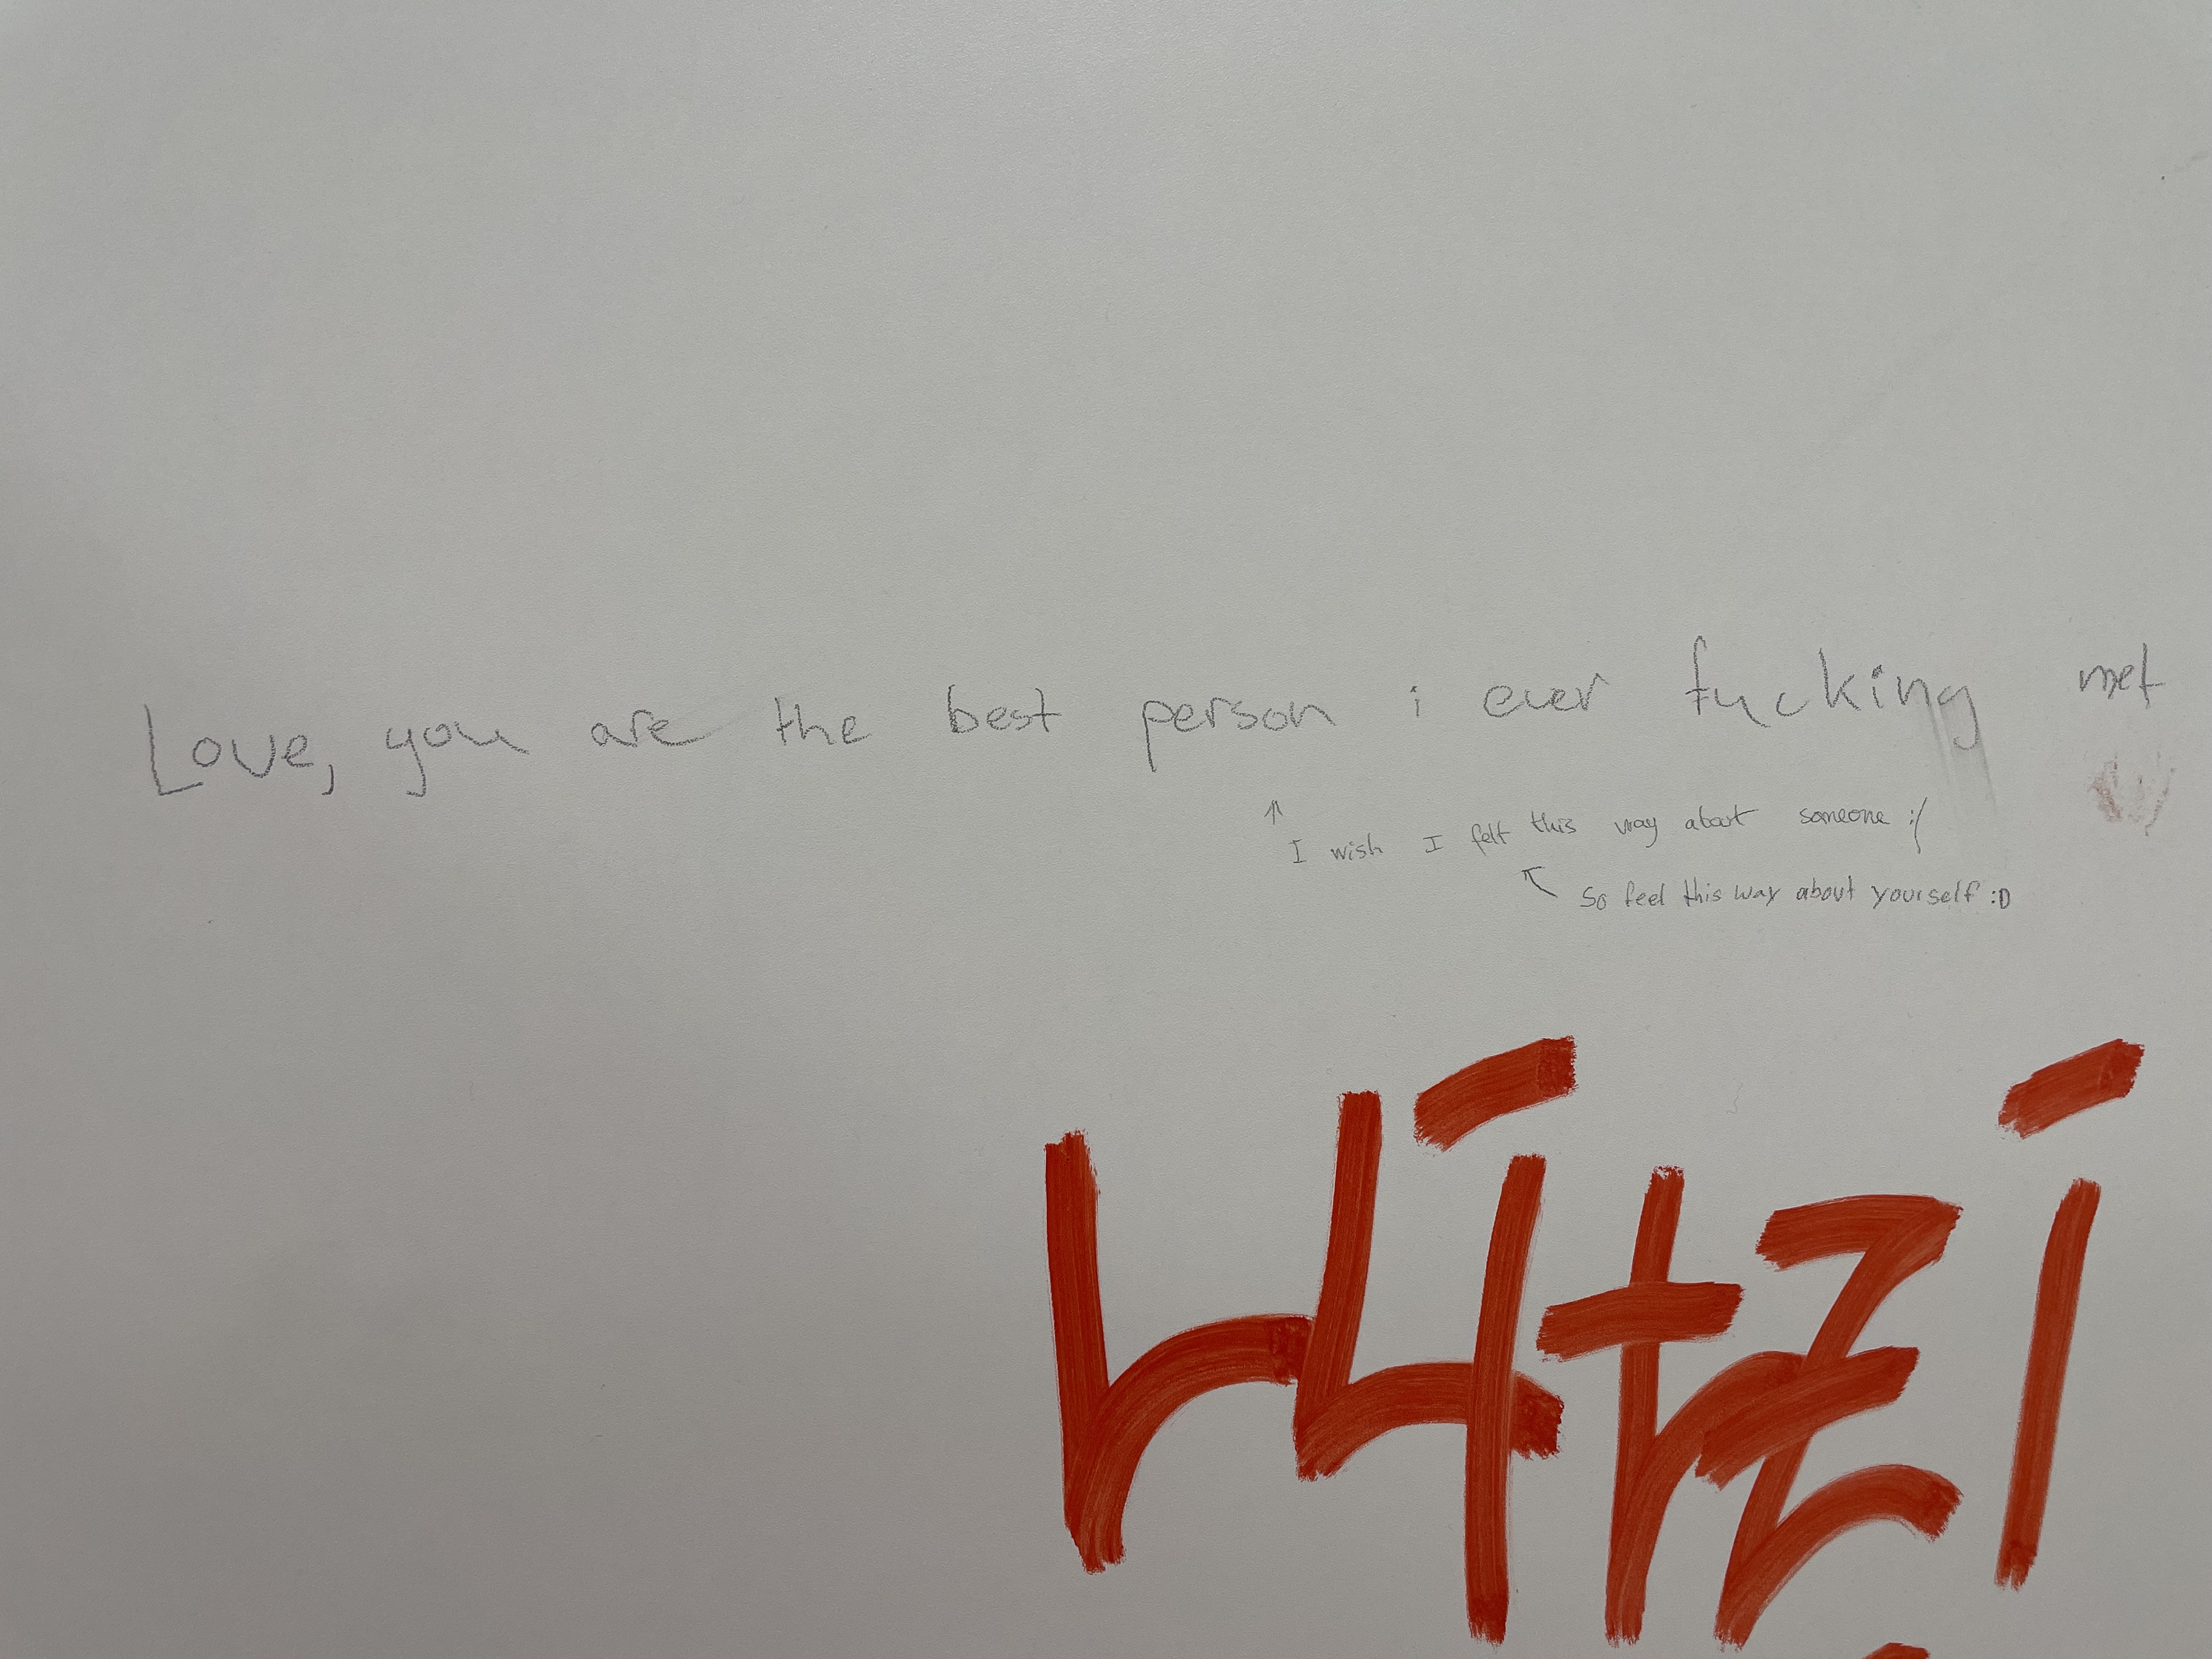 Love, you are the best person i ever fucking met
↑ I wish I felt this way about someone :/
↖ So feel this way about yourself :D